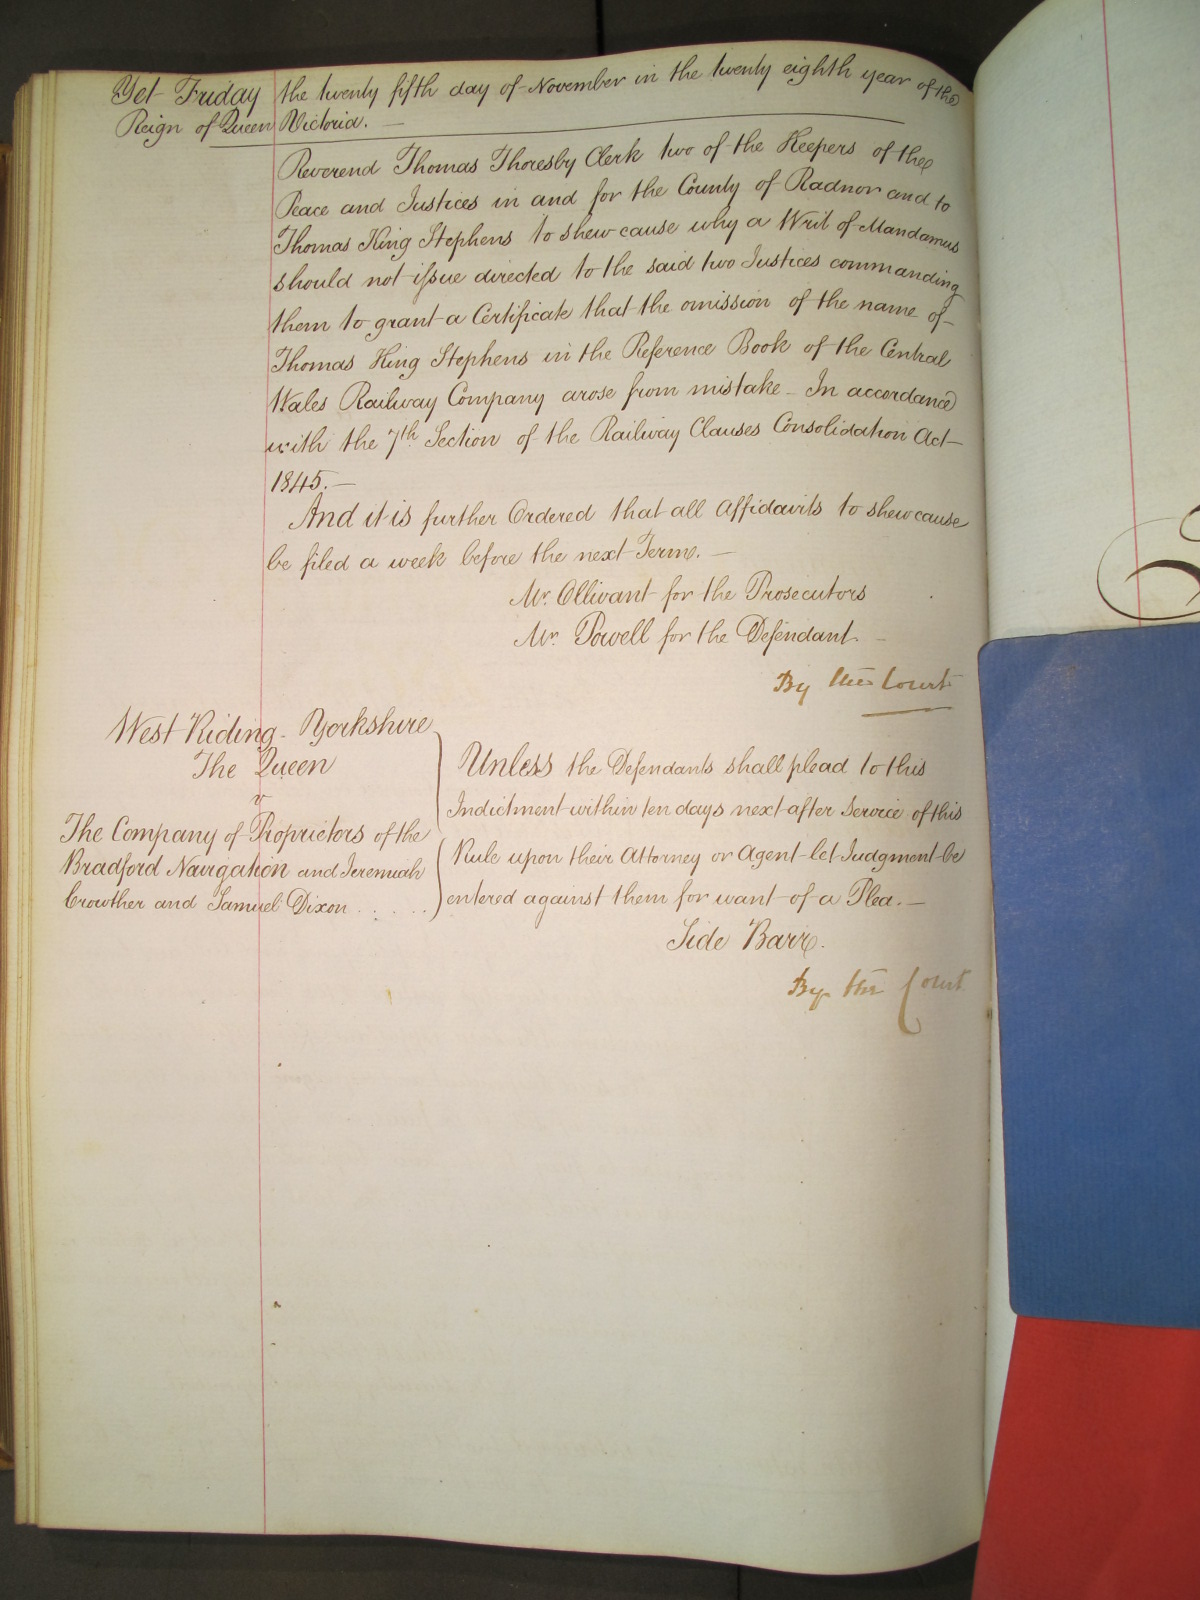 Yet Friday the twenty fifth day of November in the twenty eighth year of the
Reign of Queen Victoria. —
Reverend Thomas Thoresby Clerk two of the Keepers of the
Peace and Justices in and for the County of Radnor and to
Thomas King Stephens to shew cause why a Writ of Mandamus
should not issue directed to the said two Justices commanding
them to grant a Certificate that the omission of the name of
Thomas King Stephens in the Reference Book of the Central
Wales Railway Company arose from mistake – In accordance
with the 7th Section of the Railway Clauses Consolidation Act
1845. —
And it is further Ordered that all Affidavits to shew cause
be filed a week before the next Term. —
Mr. Ollivant for the Prosecutors
Mr. Powell for the Defendant. –
By the Court
West Riding – Yorkshire
The Queen
v
The Company of Proprietors of the
Bradford Navigation and Jeremiah
Crowther and Samuel Dixon . . . . . .
Unless the Defendants shall plead to this
Indictment within ten days next after Service of this
Rule upon their Attorney or Agent let Judgment be
entered against them for want of a Plea. —
Side Barr.
By the Court